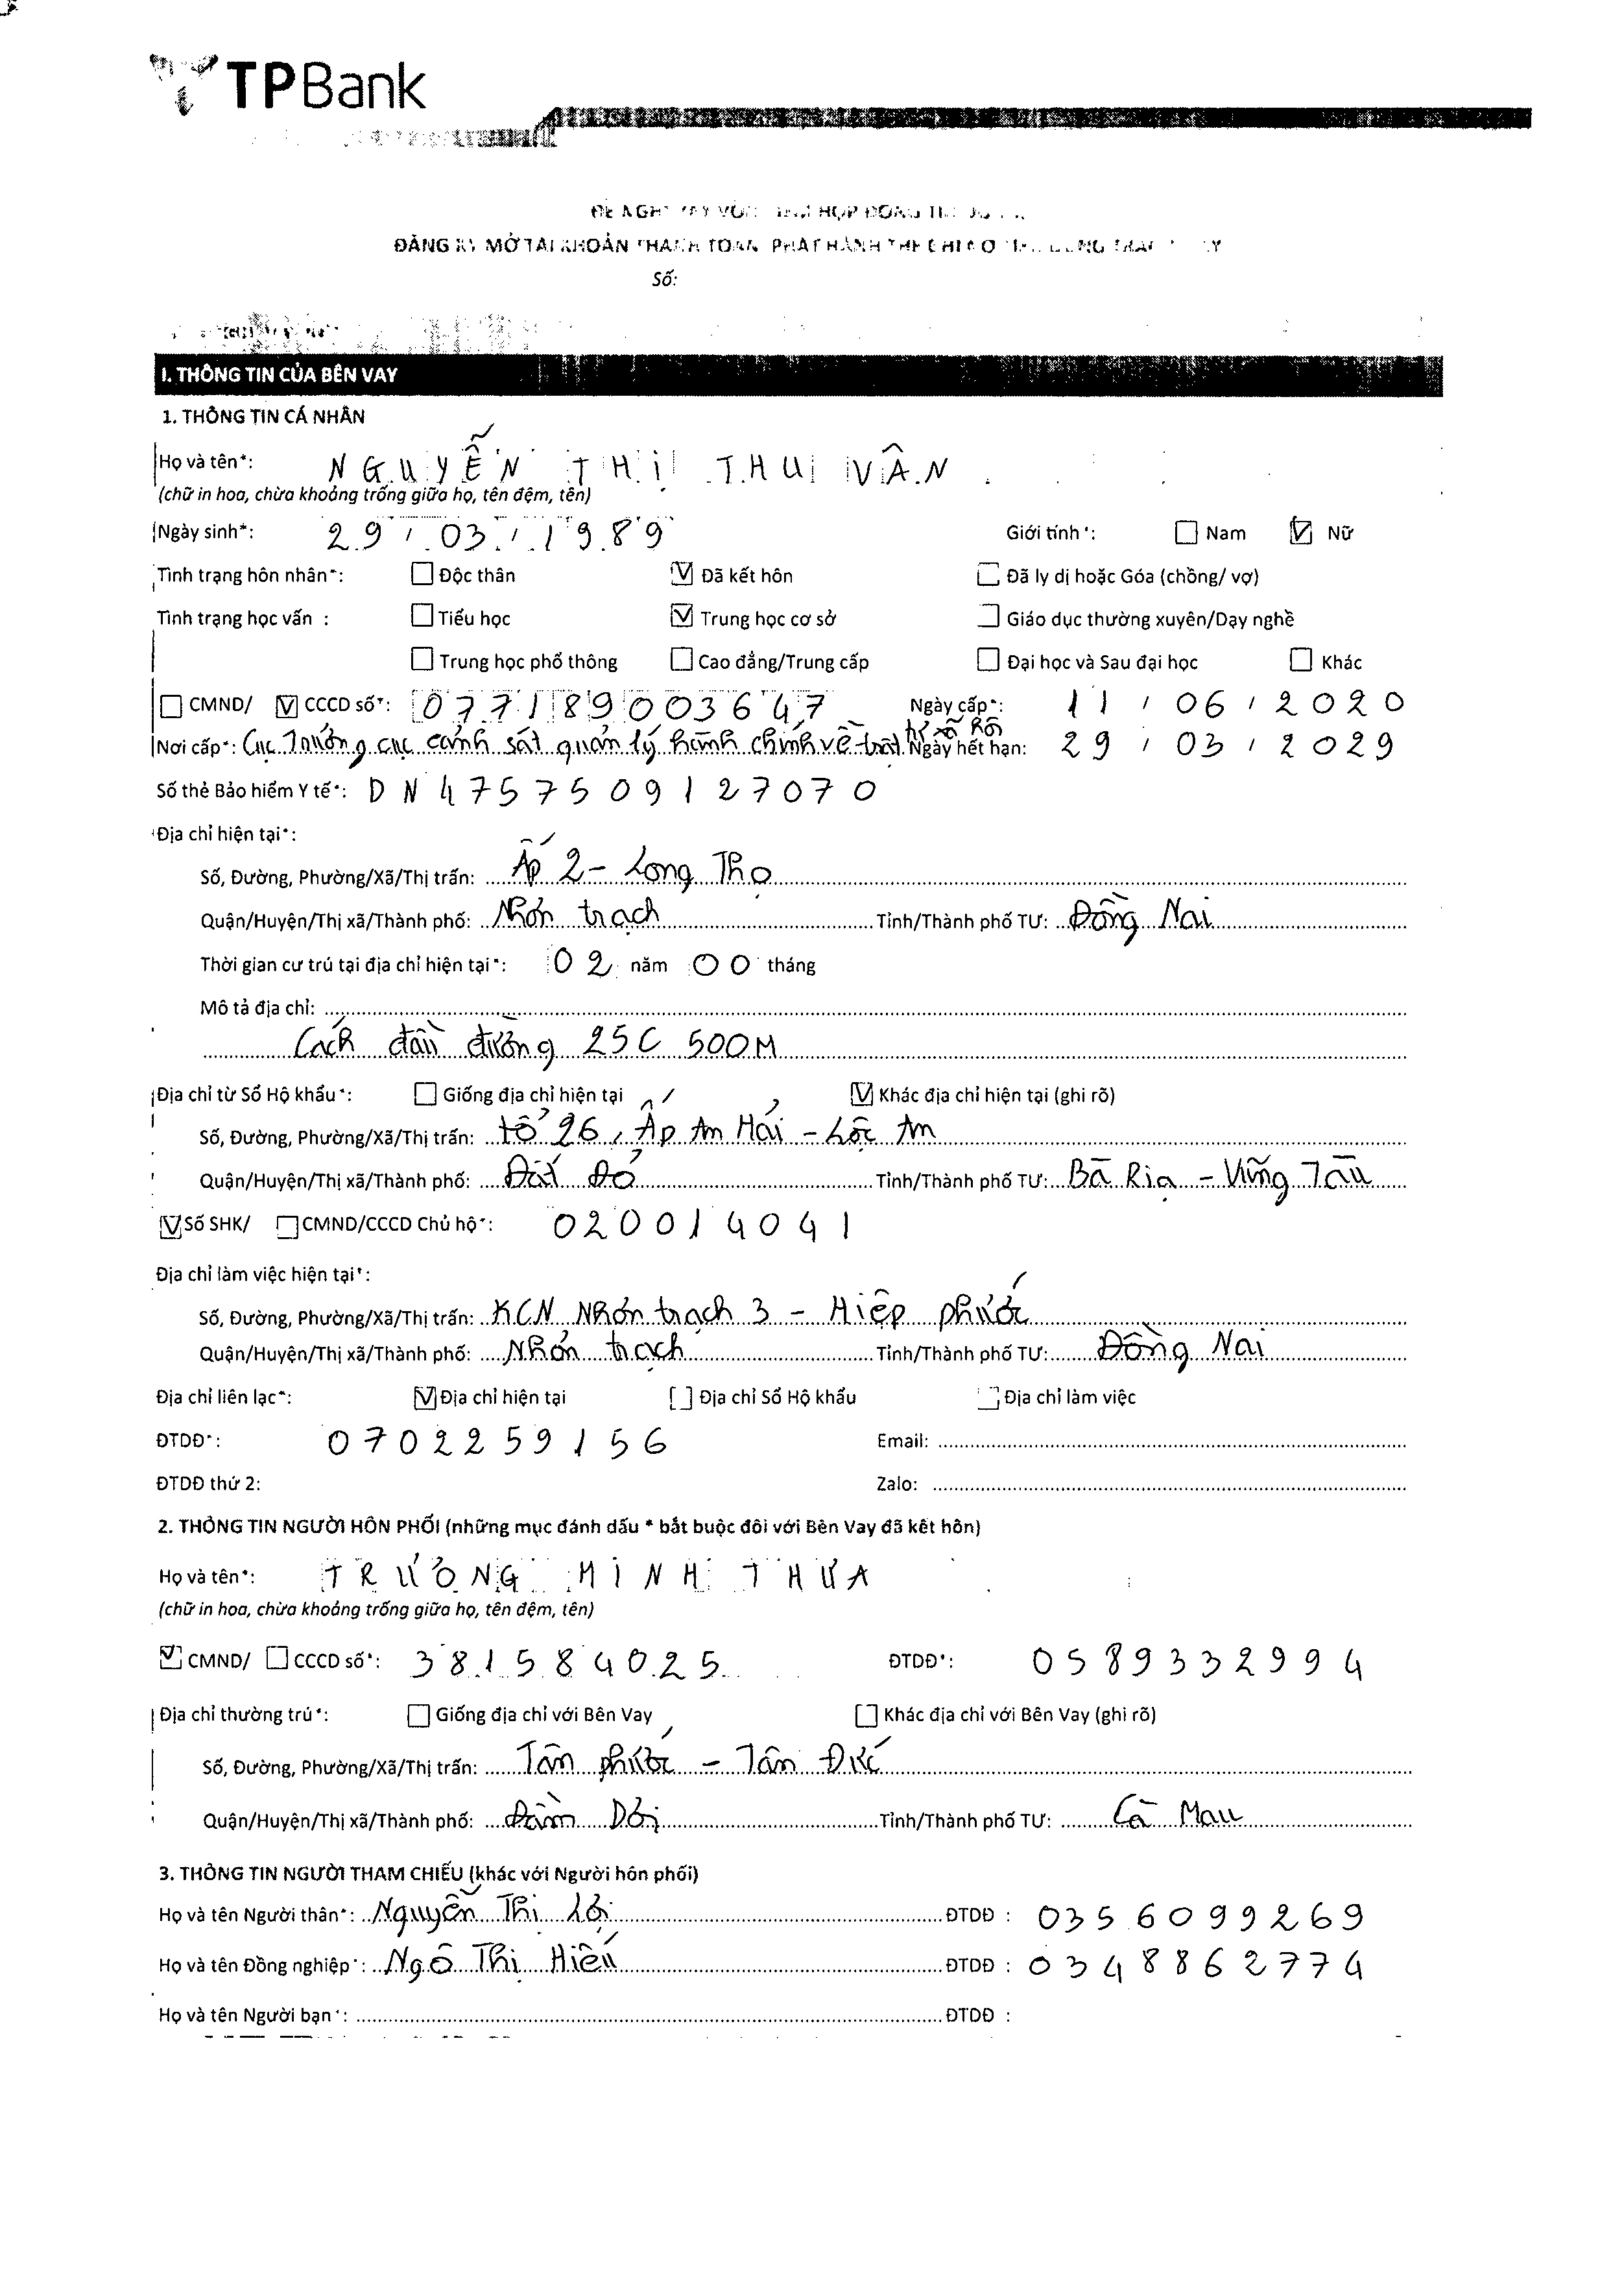 TPBank
ĐĂNG KÝ MỞ TÀI KHOẢN THANH TOÁN PHÁT HÀNH THẺ
Số:
I. THÔNG TIN CỦA BÊN VAY
1. THÔNG TIN CÁ NHÂN
Họ và tên*: NGUYỄN THỊ THU VÂN
(chữ in hoa, chừa khoảng trống giữa họ, tên đệm, tên)
Ngày sinh*: 29 / 03 / 1989 Giới tính*: Nam V Nữ
Tình trạng hôn nhân*: Độc thân V Đã kết hôn Đã ly dị hoặc Góa (chồng/ vợ)
Tình trạng học vấn : Tiểu học V Trung học cơ sở Giáo dục thường xuyên/Dạy nghề
Trung học phổ thông Cao đẳng/Trung cấp Đại học và Sau đại học Khác
CMND/ V CCCD số*: 077189003647 Ngày cấp*: 11 / 06 / 2020
Nơi cấp*: Cục Trưởng cục cảnh sát quản lý hành chính về trật tự xã hội Ngày hết hạn: 29 / 03 / 2029
Số thẻ Bảo hiểm Y tế*: DN4757509127070
Địa chỉ hiện tại*:
Số, Đường, Phường/Xã/Thị trấn: Ấp 2 - Long Thọ
Quận/Huyện/Thị xã/Thành phố: Nhơn trạch Tỉnh/Thành phố TƯ: Đồng Nai
Thời gian cư trú tại địa chỉ hiện tại*: 02 năm 00 tháng
Mô tả địa chỉ:
Cách đầu đường 25C 500M
Địa chỉ từ Sổ Hộ khẩu*: Giống địa chỉ hiện tại V Khác địa chỉ hiện tại (ghi rõ)
Số, Đường, Phường/Xã/Thị trấn: tổ 26, Ấp An Hải - Lộc An
Quận/Huyện/Thị xã/Thành phố: Đất Đỏ Tỉnh/Thành phố TƯ: Bà Rịa - Vũng Tàu
V Số SHK/ CMND/CCCD Chủ hộ*: 020014041
Địa chỉ làm việc hiện tại*:
Số, Đường, Phường/Xã/Thị trấn: KCN Nhơn trạch 3 - Hiệp phước
Quận/Huyện/Thị xã/Thành phố: Nhơn trạch Tỉnh/Thành phố TƯ: Đồng Nai
Địa chỉ liên lạc*: V Địa chỉ hiện tại Địa chỉ Sổ Hộ khẩu Địa chỉ làm việc
ĐTDĐ*: 0702259156 Email:
ĐTDĐ thứ 2: Zalo:
2. THÔNG TIN NGƯỜI HÔN PHỐI (những mục đánh dấu * bắt buộc đối với Bên Vay đã kết hôn)
Họ và tên*: TRƯƠNG MINH THƯA
(chữ in hoa, chừa khoảng trống giữa họ, tên đệm, tên)
V CMND/ CCCD số*: 381584025 ĐTDĐ*: 0589332994
Địa chỉ thường trú*: Giống địa chỉ với Bên Vay Khác địa chỉ với Bên Vay (ghi rõ)
Số, Đường, Phường/Xã/Thị trấn: Tân phước - Tân Đức
Quận/Huyện/Thị xã/Thành phố: Đầm Dơi Tỉnh/Thành phố TƯ: Cà Mau
3. THÔNG TIN NGƯỜI THAM CHIẾU (khác với Người hôn phối)
Họ và tên Người thân*: Nguyễn Thị Lợi ĐTDĐ : 0356099269
Họ và tên Đồng nghiệp*: Ngô Thị Hiếu ĐTDĐ : 0348862774
Họ và tên Người bạn*: ĐTDĐ :